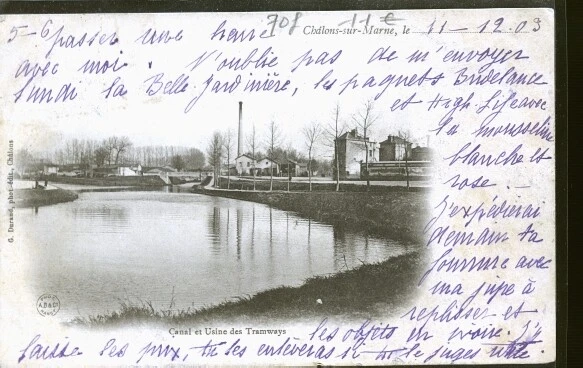 708 11 €
Châlons-sur-Marne, le 11-12-03
5-6 passer une heure
avec moi. N'oublie pas de m'envoyer
lundi la Belle Jardinière, les paquets
et High-Life avec
la mousseline
blanche et
rose. —
J'expédierai
demain ta
fourrure avec
ma jupe à
replisser et
les objets en ivoire. J'y
laisse les prix, tu les enlèveras si tu le juges utile.
G. Durand, phot.-édit., Châlons
Canal et Usine des Tramways